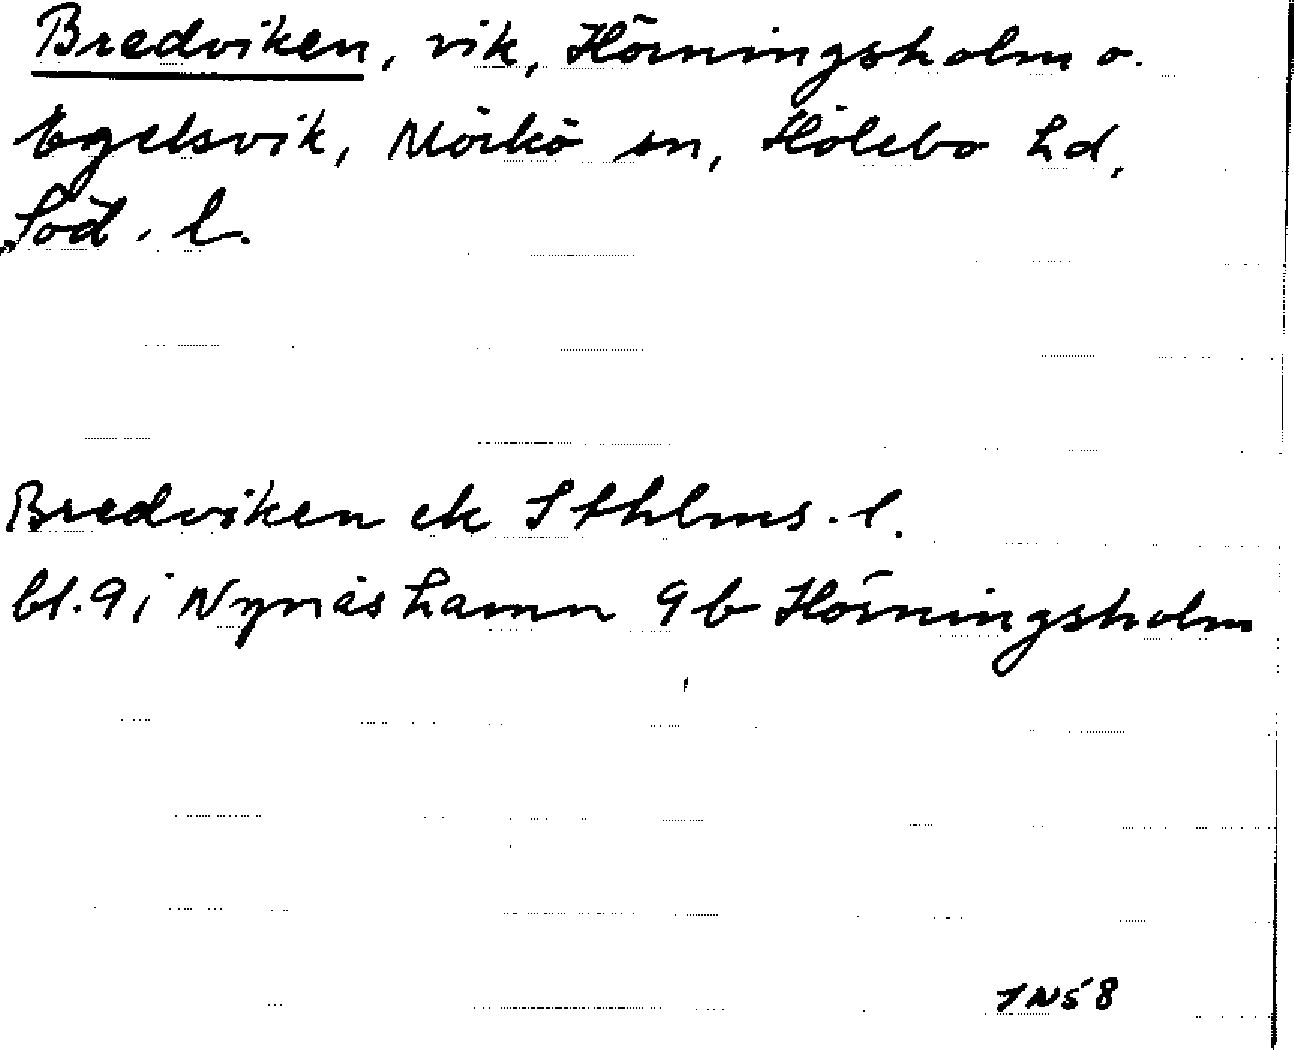 Bredviken, vik, Hörningsholm o.
Egelsvik, Mörkö sn, Hölebo hd,
Söd. l.
Bredviken ek Sthlms. l.
bl. 9 i Nynäshamn 9 b Hörningsholm
IN58